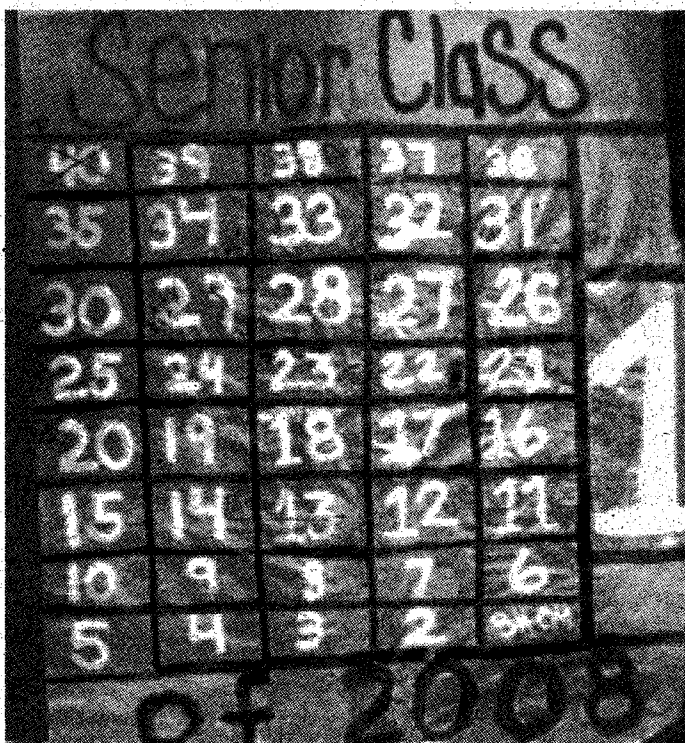 Senior Class
40 39 38 37 36
35 34 33 32 31
30 29 28 27 26
25 24 23 22 21
20 19 18 17 16
15 14 13 12 11
10 9 8 7 6
5 4 3 2
1
of 2008